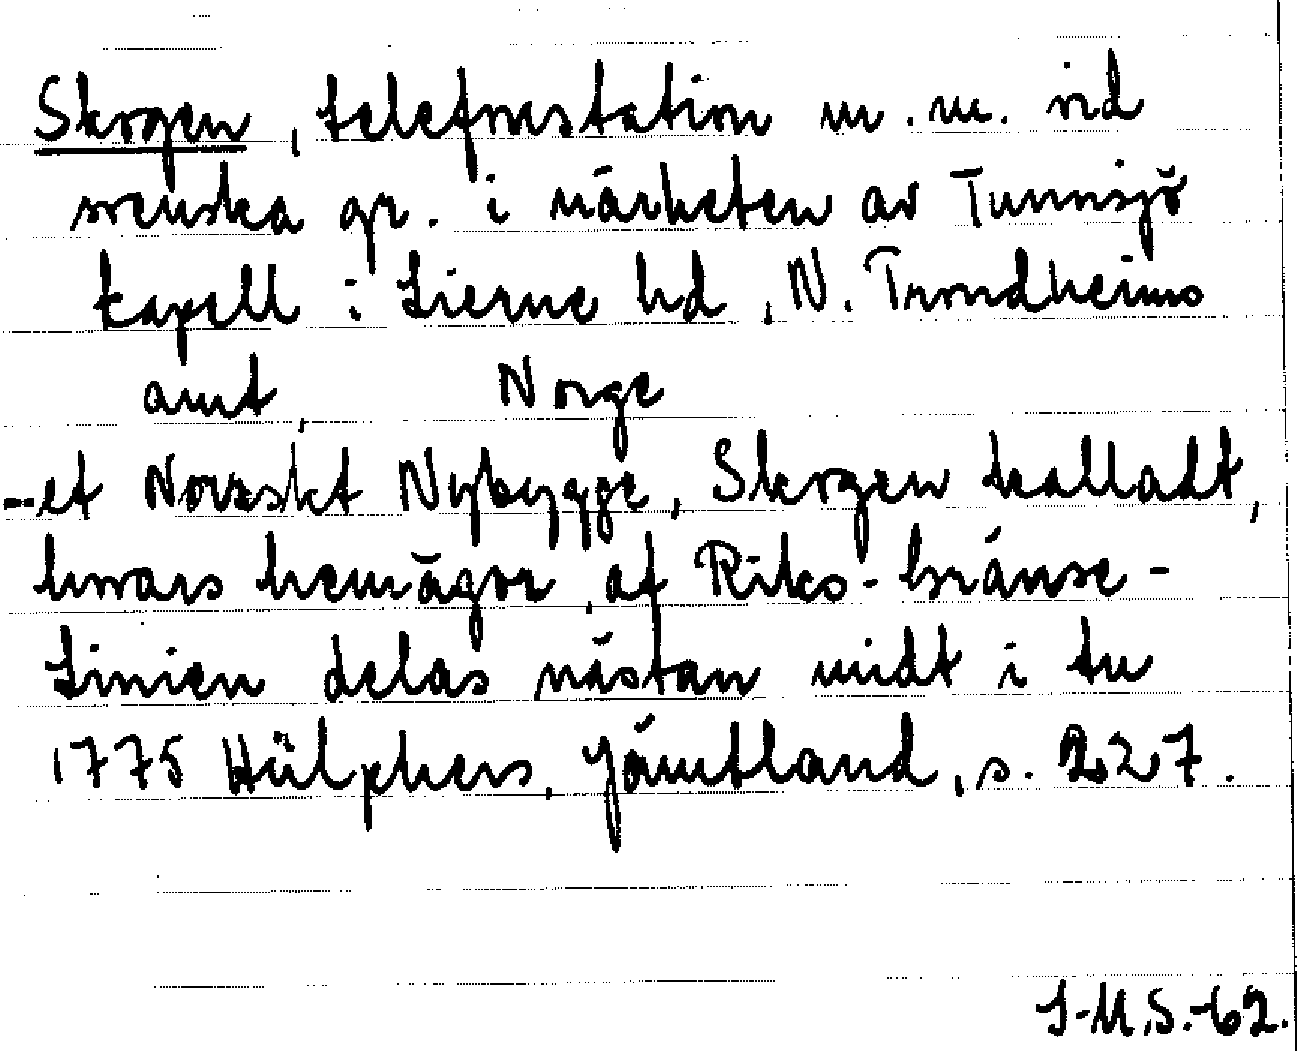 Skogen, telefonstation m.m. vid
svenska gr. i närheten av Tunnsjö
kapell i Lierne hd, N. Trondheims
amt, Norge
--et Norskt Nybygge, Skogen kalladt,
hwars hemägor, af Riks-Gränse-
Linien delas nästan midt i tu
1775 Hülphers, Jämtland, s. 227.
J-M.S.-62.